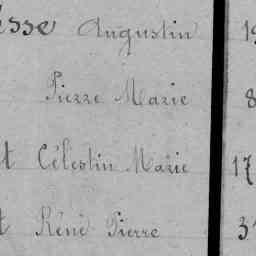 esse Augustin 19
Pierre Marie 8
t Célestin Marie 17
t Réné Pierre 31